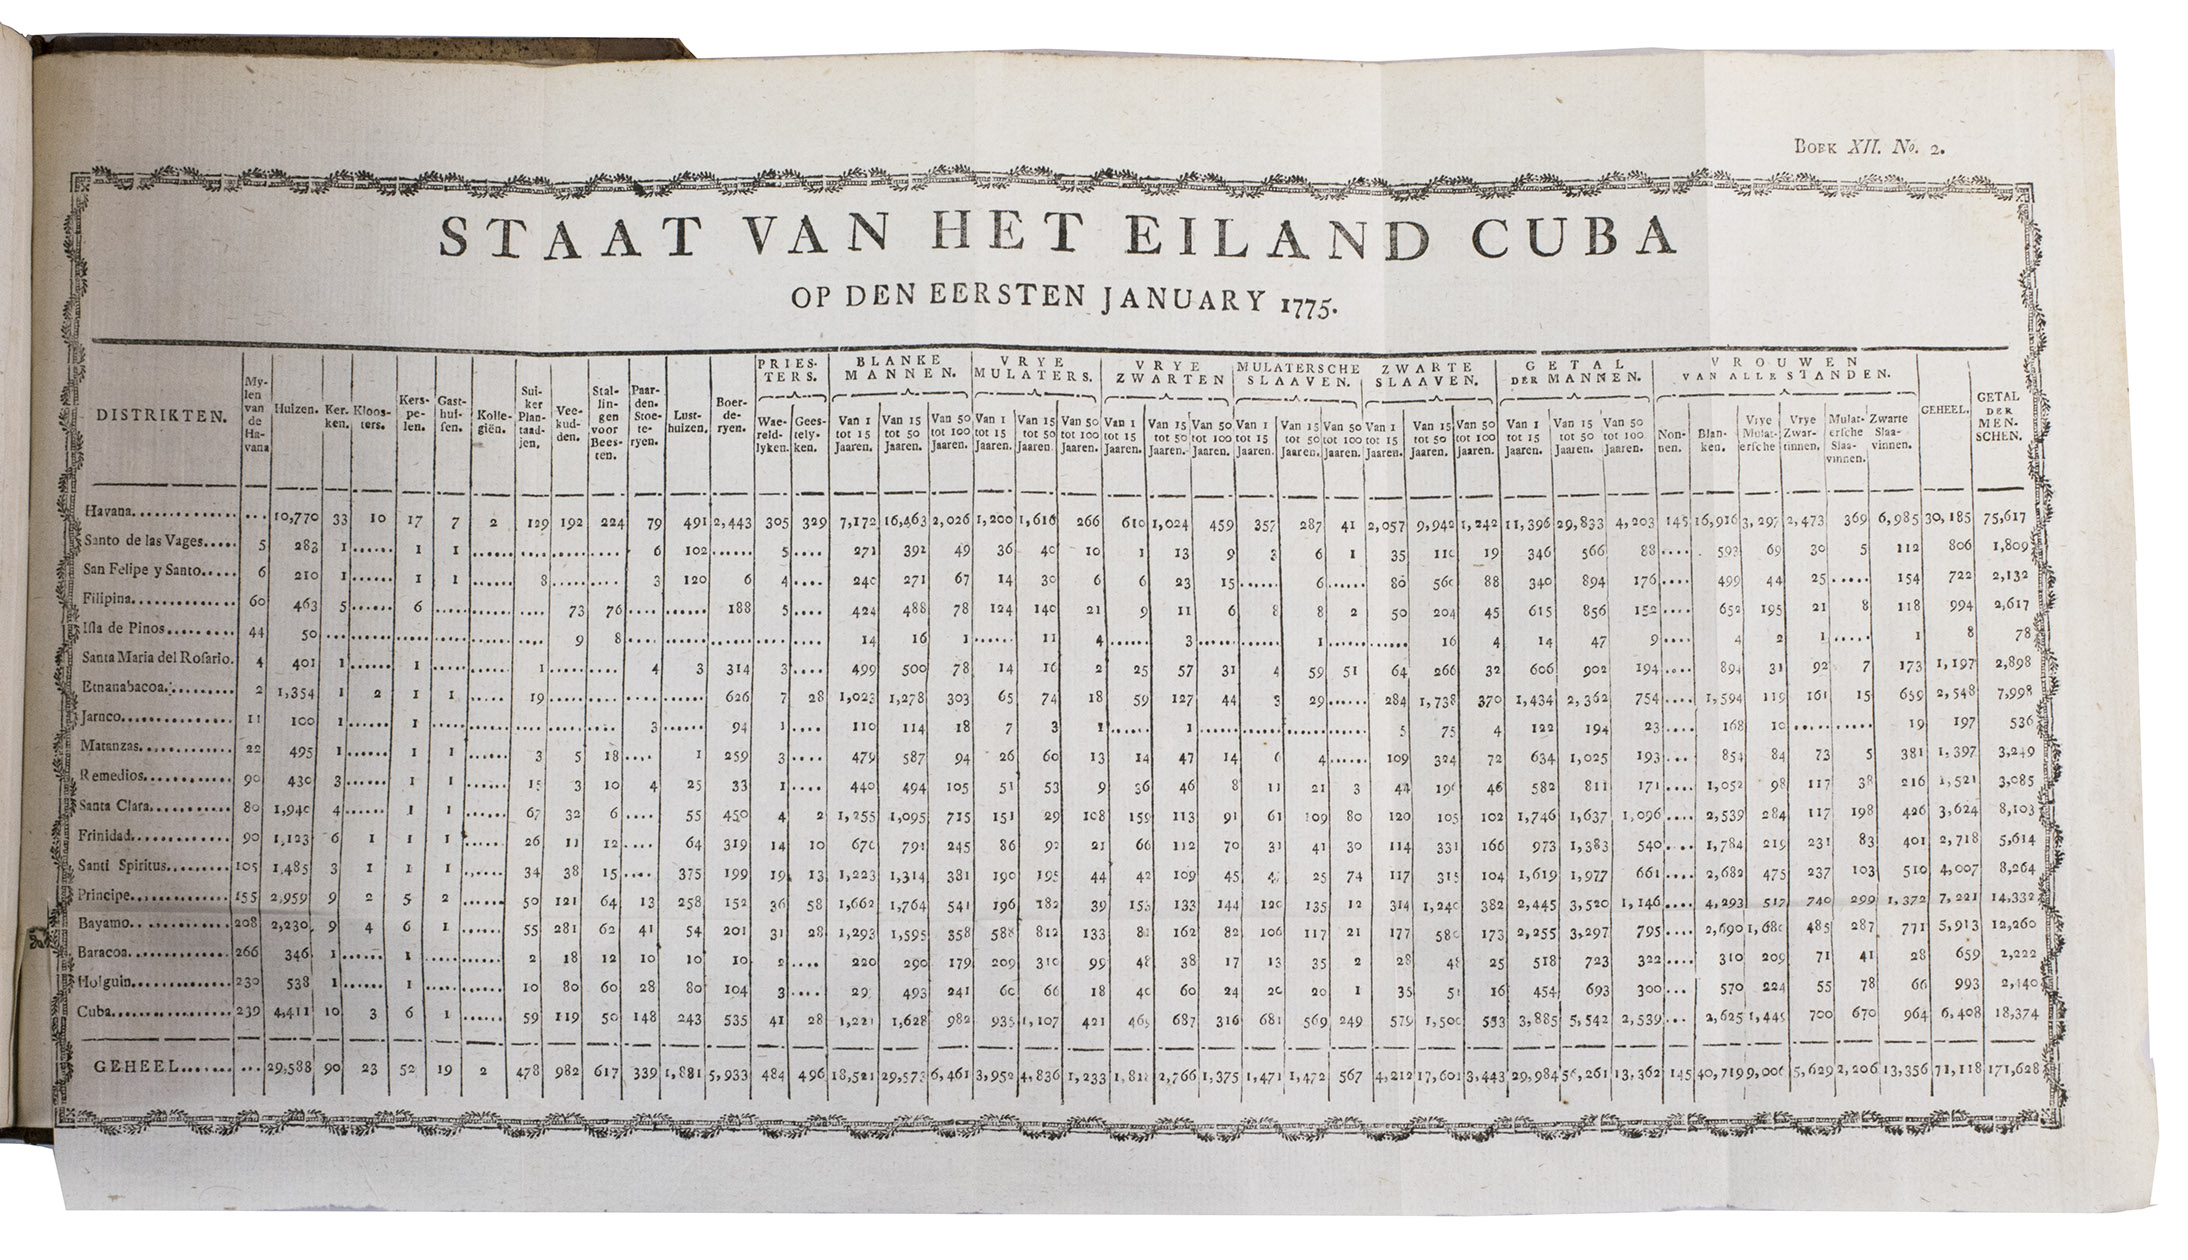 BOEK XII. No. 2.
STAAT VAN HET EILAND CUBA
OP DEN EERSTEN JANUARY 1775.
DISTRIKTEN. My-len van de Ha-vana Huizen. Ker-ken. Kloos-ters. Kers-pe-len. Gast-hui-sen. Kolle-giën. Sui-ker Plan-taad-jen. Vee-kud-den. Stal-lin-gen voor Bees-ten. Paar-den-Stoe-te-ryen. Lust-huizen. Boer-de-ryen. PRIES-TERS. Wae-reld-lyken. Gees-tely-ken. BLANKE MANNEN. Van 1 tot 15 Jaaren. Van 15 tot 50 Jaaren. Van 50 tot 100 Jaaren. VRYE MULATERS. Van 1 tot 15 Jaaren. Van 15 tot 50 Jaaren. Van 50 tot 100 Jaaren. VRYE ZWARTEN Van 1 tot 15 Jaaren. Van 15 tot 50 Jaaren. Van 50 tot 100 Jaaren. MULATERSCHE SLAAVEN. Van 1 tot 15 Jaaren. Van 15 tot 50 Jaaren. Van 50 tot 100 Jaaren. ZWARTE SLAAVEN. Van 1 tot 15 Jaaren. Van 15 tot 50 Jaaren. Van 50 tot 100 Jaaren. GETAL DER MANNEN. Van 1 tot 15 Jaaren. Van 15 tot 50 Jaaren. Van 50 tot 100 Jaaren. VROUWEN VAN ALLE STANDEN. Non-nen. Blan-ken. Vrye Mulat-ersche Vrye Zwar-tinnen. Mulat-ersche Slaa-vinnen. Zwarte Slaa-vinnen. GEHEEL. GETAL DER MEN-SCHEN.
Havana. ... 10,770 33 10 17 7 2 129 192 224 79 491 2,443 305 329 7,172 16,463 2,026 1,200 1,616 266 610 1,024 459 357 287 41 2,057 9,942 1,242 11,396 29,833 4,203 145 16,916 3,297 2,473 369 6,985 30,185 75,617
Santo de las Vages 5 283 1 1 1 6 102 5 271 392 49 36 40 10 1 13 9 3 6 1 35 110 19 346 566 88 593 69 30 5 112 806 1,809
San Felipe y Santo 6 210 1 1 1 8 3 120 6 4 240 271 67 14 30 6 6 23 15 6 80 560 88 340 894 176 499 44 25 154 722 2,132
Filipina. 60 463 5 6 73 76 188 5 424 488 78 124 140 21 9 11 6 8 8 2 50 204 45 615 856 152 652 195 21 8 118 994 2,617
Isla de Pinos 44 50 9 8 14 16 1 11 4 3 1 16 4 14 47 9 4 2 1 1 8 78
Santa Maria del Rosario. 4 401 1 1 1 4 3 314 3 499 500 78 14 16 2 25 57 31 4 59 51 64 266 32 606 902 194 894 31 92 7 173 1,197 2,898
Etnanabacoa. 2 1,354 1 2 1 1 19 626 7 28 1,023 1,278 303 65 74 18 59 127 44 3 29 284 1,738 370 1,434 2,362 754 1,594 119 161 15 659 2,548 7,998
Jarnco. 11 100 1 1 3 94 1 110 114 18 7 3 1 1 5 75 4 122 194 23 168 10 19 197 536
Matanzas. 22 495 1 1 1 3 5 18 1 259 3 479 587 94 26 60 13 14 47 14 6 4 109 324 72 634 1,025 193 854 84 73 5 381 1,397 3,249
Remedios. 90 430 3 1 1 15 3 10 4 25 33 1 440 494 105 51 53 9 36 46 8 11 21 3 44 196 46 582 811 171 1,052 98 117 38 216 1,521 3,085
Santa Clara. 80 1,940 4 1 1 67 32 6 55 450 4 2 1,255 1,095 715 151 29 108 159 113 91 61 109 80 120 105 102 1,746 1,637 1,096 2,539 284 117 198 426 3,624 8,103
Frinidad. 90 1,123 6 1 1 1 26 11 12 64 319 14 10 676 791 245 86 92 21 66 112 70 31 41 30 114 331 166 973 1,383 540 1,784 219 231 83 401 2,718 5,614
Santi Spiritus. 105 1,485 3 1 1 1 34 38 15 375 199 19 13 1,223 1,314 381 190 195 44 42 109 45 25 74 117 315 104 1,619 1,977 661 2,682 475 237 103 510 4,007 8,264
Principe. 155 2,959 9 2 5 2 50 121 64 13 258 152 36 58 1,662 1,764 541 196 182 39 153 133 144 120 135 12 314 1,240 382 2,445 3,520 1,146 4,293 517 740 299 1,372 7,221 14,332
Bayamo. 208 2,230 9 4 6 1 55 281 62 41 54 201 31 28 1,293 1,595 358 588 812 133 162 82 106 117 21 177 580 173 2,255 3,297 795 2,690 1,680 485 287 771 5,913 12,260
Baracoa. 266 346 1 1 2 18 12 10 10 10 2 220 290 179 209 310 99 48 38 17 13 35 2 28 48 25 518 723 322 310 209 71 41 28 659 2,222
Holguin. 230 538 1 1 10 80 60 28 80 104 3 29 493 241 60 66 18 40 60 24 20 20 1 35 51 16 454 693 300 570 224 55 78 66 993 2,440
Cuba. 239 4,411 10 3 6 1 59 119 50 148 243 535 41 28 1,221 1,628 982 935 1,107 421 465 687 316 681 569 249 579 1,500 553 3,885 5,542 2,539 2,625 1,449 700 670 964 6,408 18,374
GEHEEL ... 29,588 90 23 52 19 2 478 982 617 339 1,881 5,933 484 496 18,521 29,573 6,461 3,952 4,836 1,233 1,818 2,766 1,375 1,471 1,472 567 4,212 17,601 3,443 29,984 56,261 13,362 145 40,719 9,006 5,629 2,206 13,356 71,118 171,628